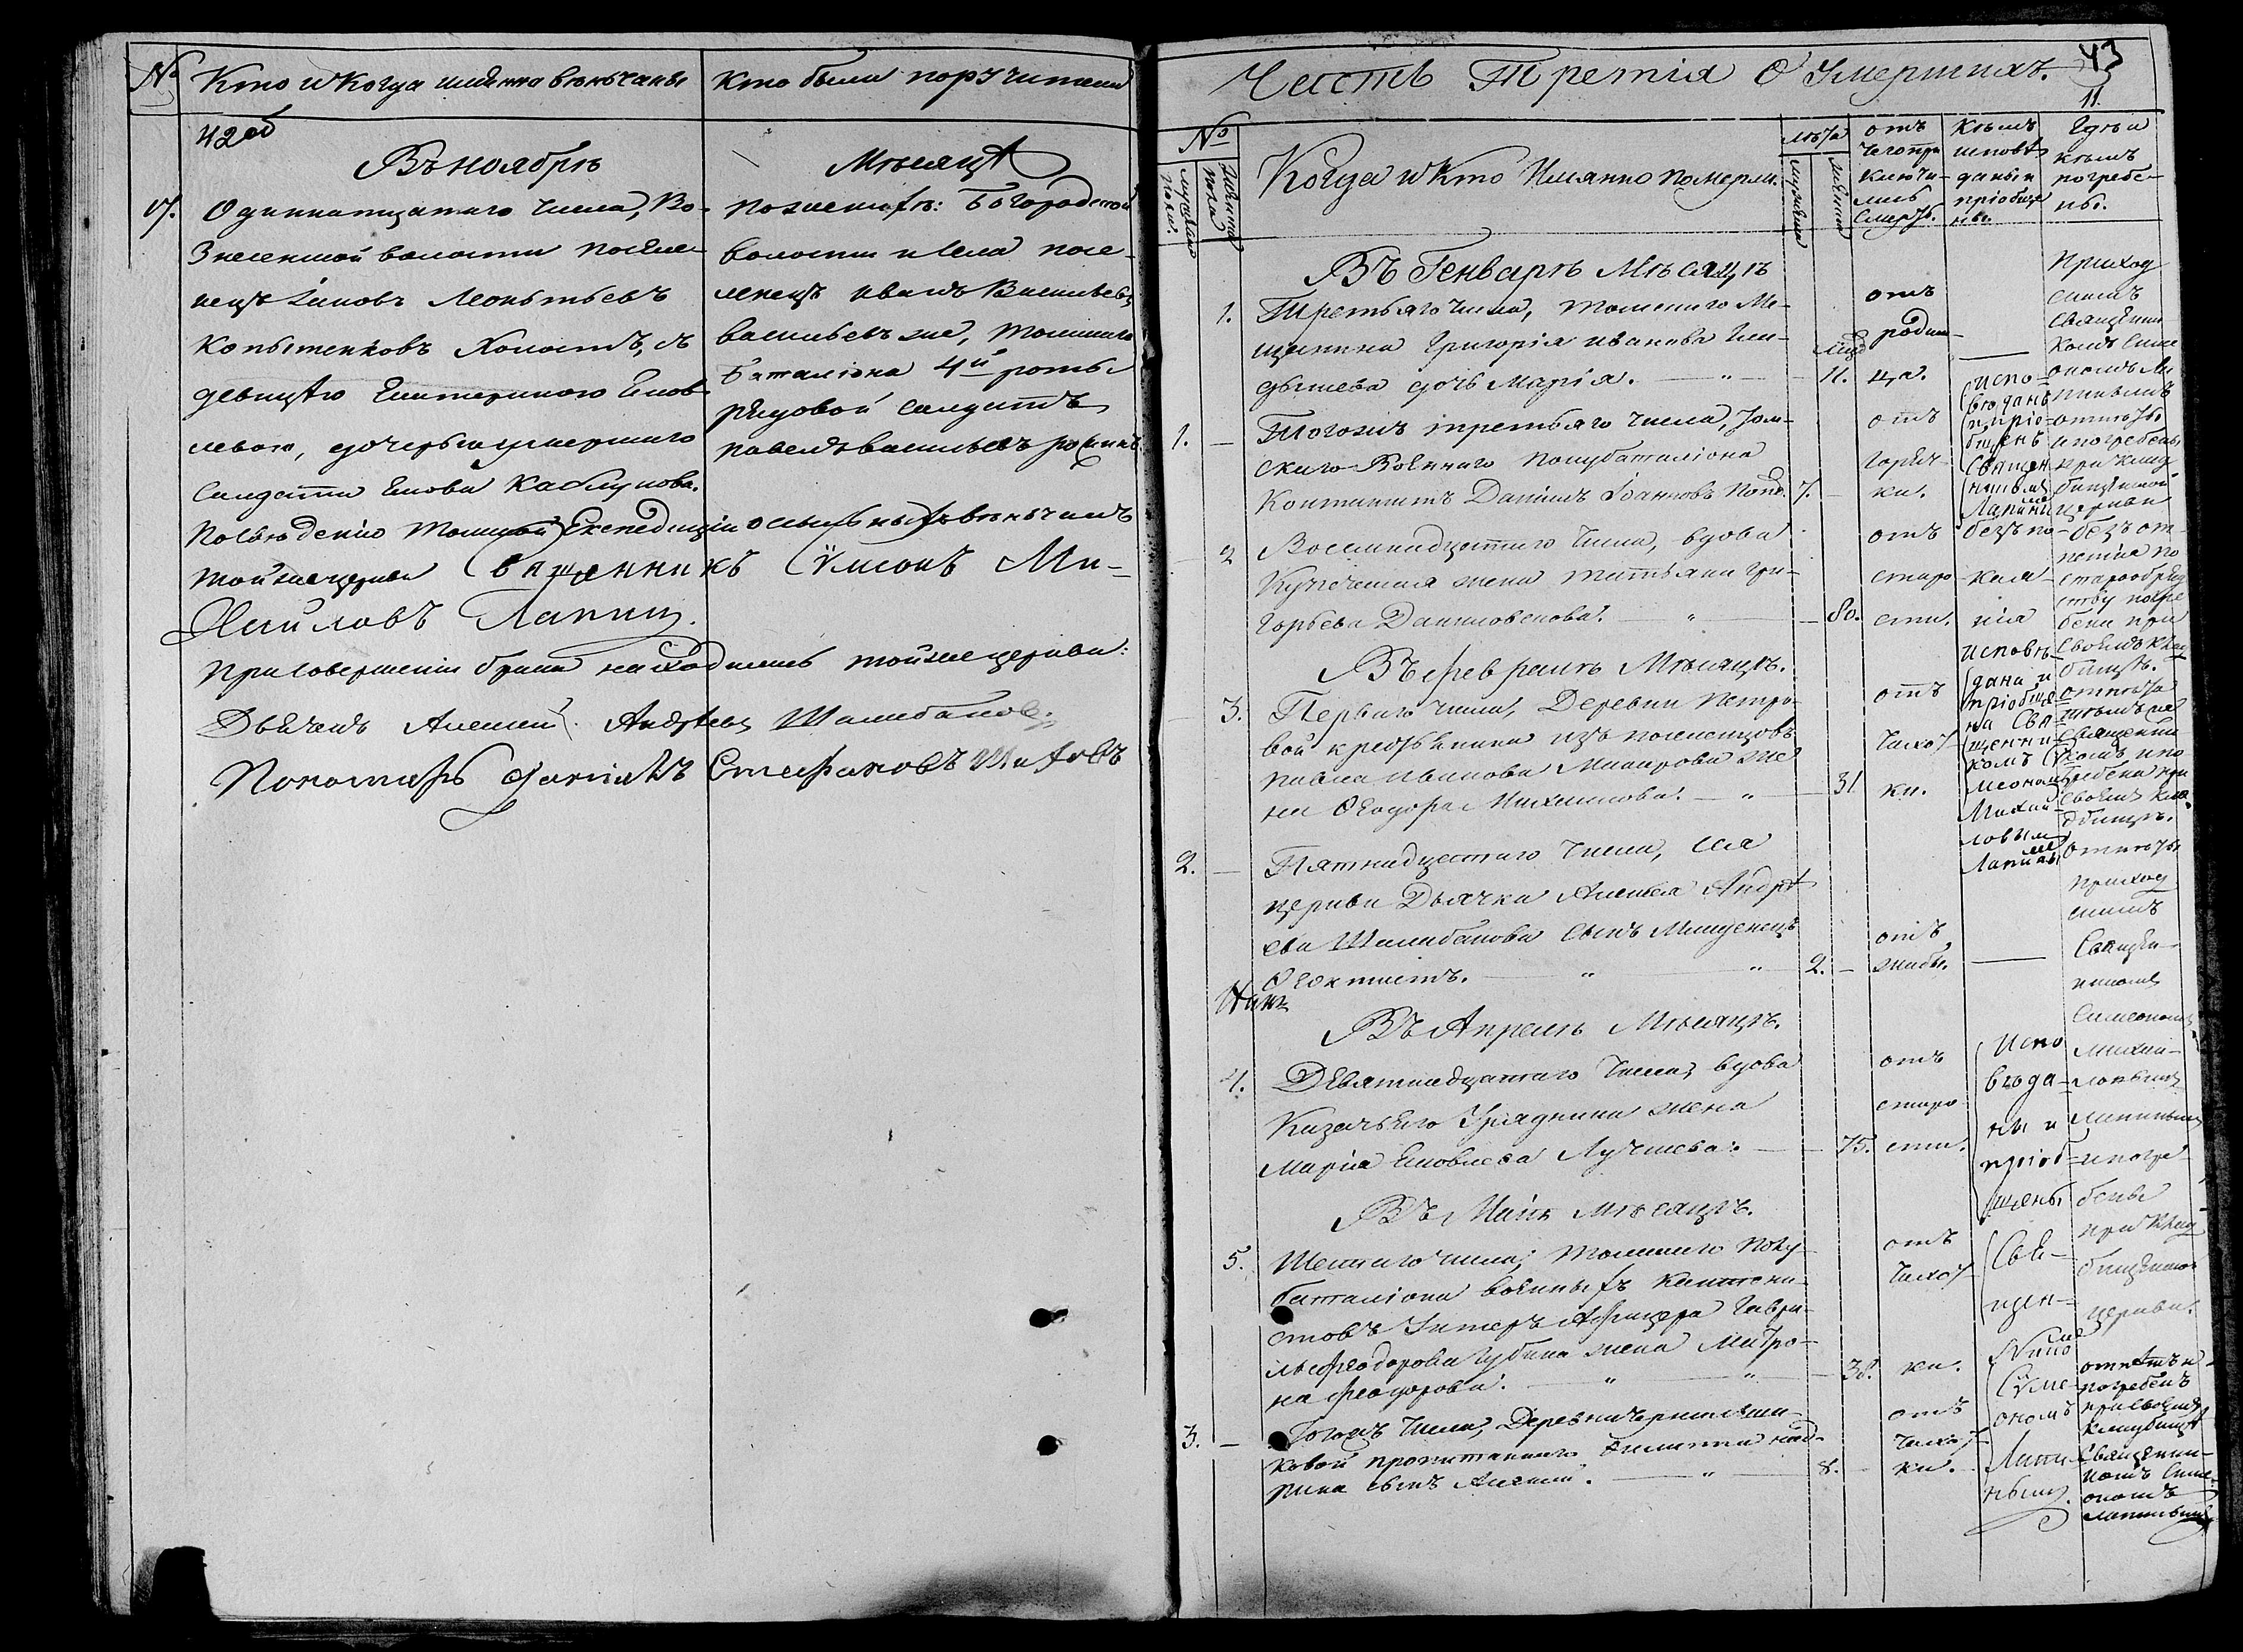 № Кто и когда имянно венчаны
Кто были поручители
42 об
Въ ноябрѣ
Мѣсяцѣ
17. Одиннатцатаго числа, Во-
знесенской волости поселе-
нецъ Іаковъ Леонтьевъ
Копытенковъ Холостъ, съ
девицею Екатериною Яков-
левою, дочерью умершаго
Салдата Якова Каблукова.
по женихѣ: Богородской
волости и села посе-
ленецъ иванъ Васильевъ
васильевъ же, томскаго
баталіона 4й роты
рядовой салдатъ
павелъ васильевъ
По сведенію Томской Експедиціи о ссыльныхъ венчалъ
тойже церкви Священникъ Сѵмеонъ Ми-
хайловъ Лапинъ.
При совершеніи брака находились тойже церкви:
Дьячекъ Алексей Андреевъ Шалабановъ.
Пономарь Даниилъ Стефановъ
43
Часть Третія О Умершихъ.
11.
№
мужеска пола.
женска пола
Когда и Кто Имянно померли.
лѣта
мужеска
женска
отъ
чего при
ключи-
лась
смерть.
Кѣмъ
исповѣ
даны и
пріобще
ны.
Где и
кѣмъ
погребе-
ны.
Въ Генварѣ Мѣсяцѣ
1. Третьяго числа, томскаго Ме-
щанина Григорія иванова
дочь Марія. 11.
отъ
родим-
ца.
Приход
скимъ
Священни
комъ Симе
ономъ Ла
пинымъ
отпѣты
и погребены
при клад
бищенской
церкви
1. Тогожъ третьяго числа, Том-
скаго Военнаго полубаталіона
Кантанистъ Даніилъ Іоанновъ 7.
отъ
горяч-
ки.
испо-
веданъ
и пріо-
бщенъ
Священ
никомъ
Лапины
2 Восемнадцатаго числа, вдова
Купеческая жена татьяна Гри-
горьева Даниловскова. 80.
отъ
старо
сти.
безъ по-
кая-
нія
безъ от-
петія по
старообряд
ству погре
бена при
своемъ клад
бищѣ.
Въ февралѣ Мѣсяцѣ.
3. Перваго числа, Деревни Петро-
вой крестьянина изъ поселенцовъ
павла иванова Макарова же
на Феодора Михаилова. 31
отъ
чахот-
ки.
исповѣ-
дана и
пріобще
на Свя-
щенни-
комъ Сѵ
меономъ
Михай-
ловым
Лапины
отпѣта
темъ же
священни
комъ и по
гребена при
своемъ кла-
дбищѣ.
2. Пятнадцатаго числа, сея
церкви Дьячка Алексея Андре
ева Шалабанова сынъ Младенецъ
Феоктистъ. 2.
отъ
жабы.
отпеты
приход
скимъ
Священ-
никомъ
Симеономъ
Михай-
ловымъ
Лапинымъ
и погре-
бены
при клад
бищенской
церкви.
Въ Апрелѣ Мѣсяцѣ.
4. Девятнадцатаго числа, вдова
Казачьяго Урядника жена
Марія Яковлева Лучшева. 75.
отъ
старо
сти.
Испо
веда-
ны и
пріоб-
щены
Свя-
щен-
Сѵме-
ономъ
Лапи-
нымъ.
Въ Маіѣ мѣсяцѣ.
5. Шестаго числа, Томскаго Полу-
баталіона военныхъ кантони-
стовъ Унтеръ Афицера Гаври-
лы Феодорова Губина жена Матро-
на Феодорова. 38.
отъ
чахот-
ки.
3. Тогожъ числа, Деревни
ковой пропитаннаго
сынъ Алексей. 8.
отъ
чахот-
ки.
отпетъ и
погребенъ
при своемъ
кладбищѣ
Священни-
комъ Симе
ономъ
Лапинымъ